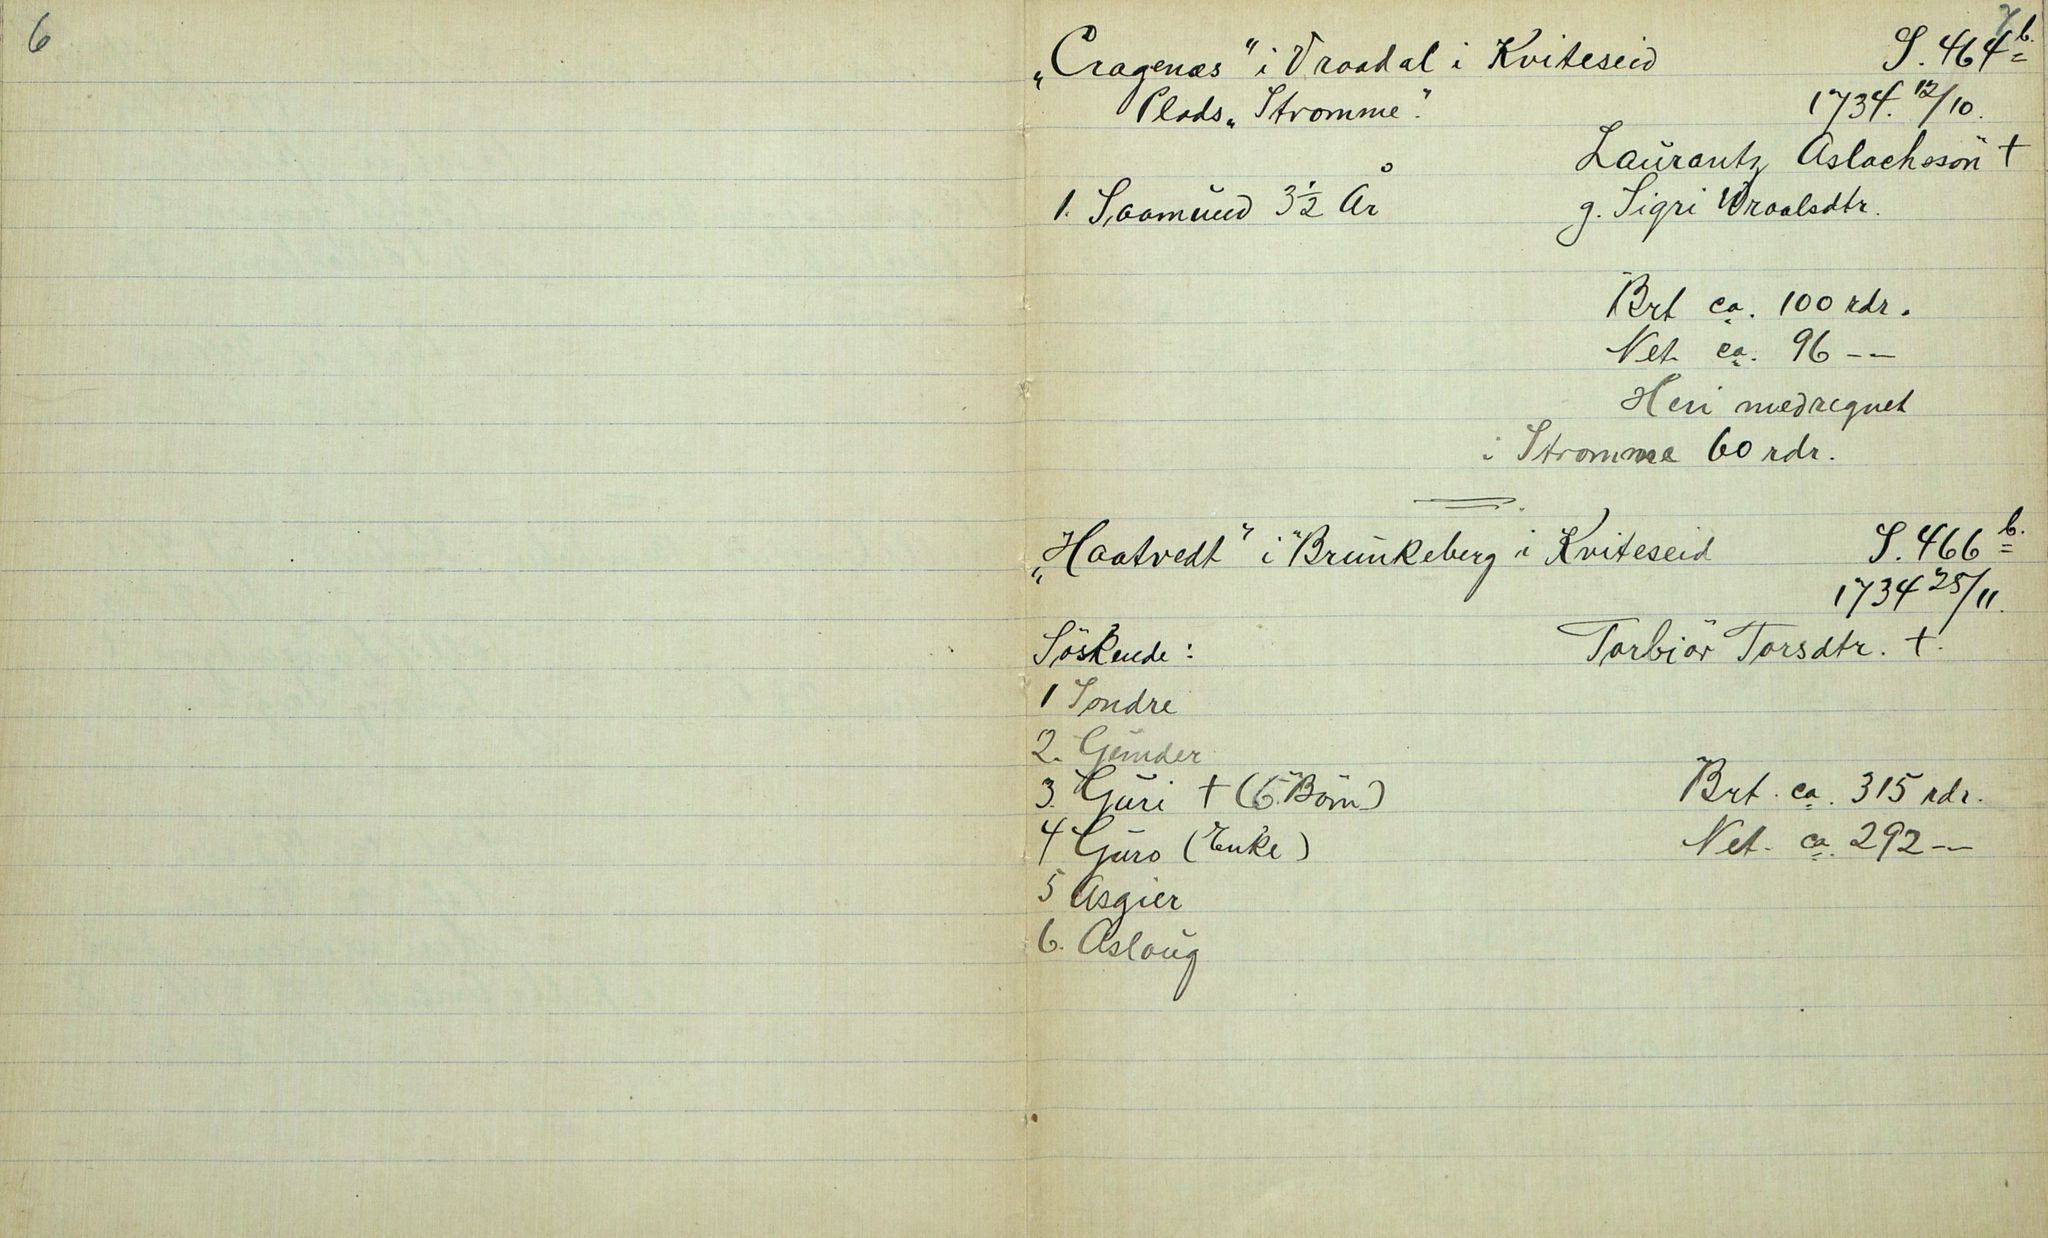 6
7
„Cragenæs" i Vraadal i Kviteseid S. 464 b.
Plads „Stromme". 1734. 12/10.
Laurantz Aslachssön †
1. Saamund 3 1/2 År g. Sigri Wraalsdtr.
Brt ca. 100 rdr.
Net. ca. 96 --
Heri medregnet
i Stromme 60 rdr.
„Haatvedt" i Brunkeberg i Kviteseid S. 466 b.
1734 25/11.
Söskende: Torbiör Torsdtr. †.
1 Sondre
2. Gunder
3. Guri † (6 Börn) Brt. ca. 315 rdr.
4 Guro (Enke) Net. ca. 292 --
5 Asgier
6. Aslaug